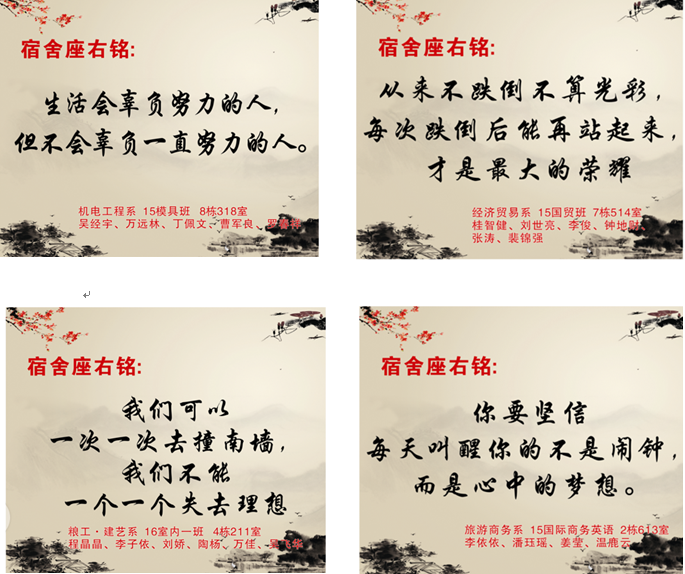 宿舍座右铭:
生活会辜负努力的人,
但不会辜负一直努力的人。
机电工程系 15模具班 8栋318室
吴经宇、万远林、丁佩文、曹军良、罗
宿舍座右铭:
从来不跌倒不算光彩,
每次跌倒后能再站起来,
才是最大的荣耀
经济贸易系 15国贸班 7栋514室
桂智健、刘世亮、李俊、钟地财、
张涛、裴锦强
宿舍座右铭:
我们可以
一次一次去撞南墙,
我们不能
一个一个失去理想
粮工·建艺系 16室内一班 4栋211室
程晶晶、李子依、刘娇、陶杨、万佳、吴飞华
宿舍座右铭:
你要坚信
每天叫醒你的不是闹钟,
而是心中的梦想。
旅游商务系 15国际商务英语 2栋613室
李依依、潘珏瑶、姜莹、温鹿云